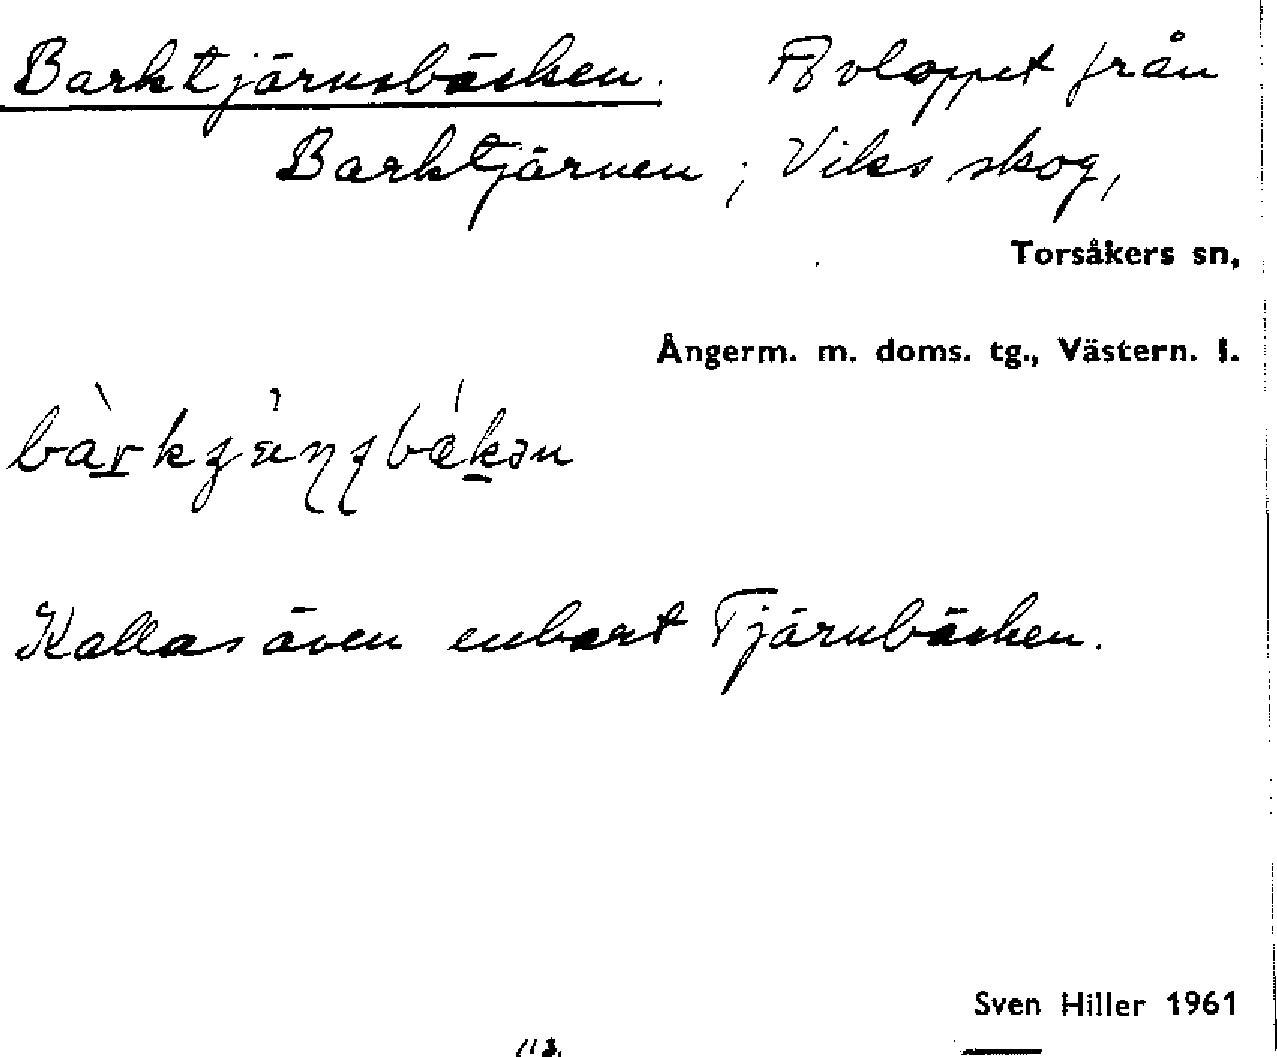 Barktjärnsbäcken. Avloppet från
Barktjärnen; Viks skog,
Torsåkers sn,
Ångerm. m. doms. tg., Västern. l.
Kallas även enbart Tjärnbäcken.
Sven Hiller 1961